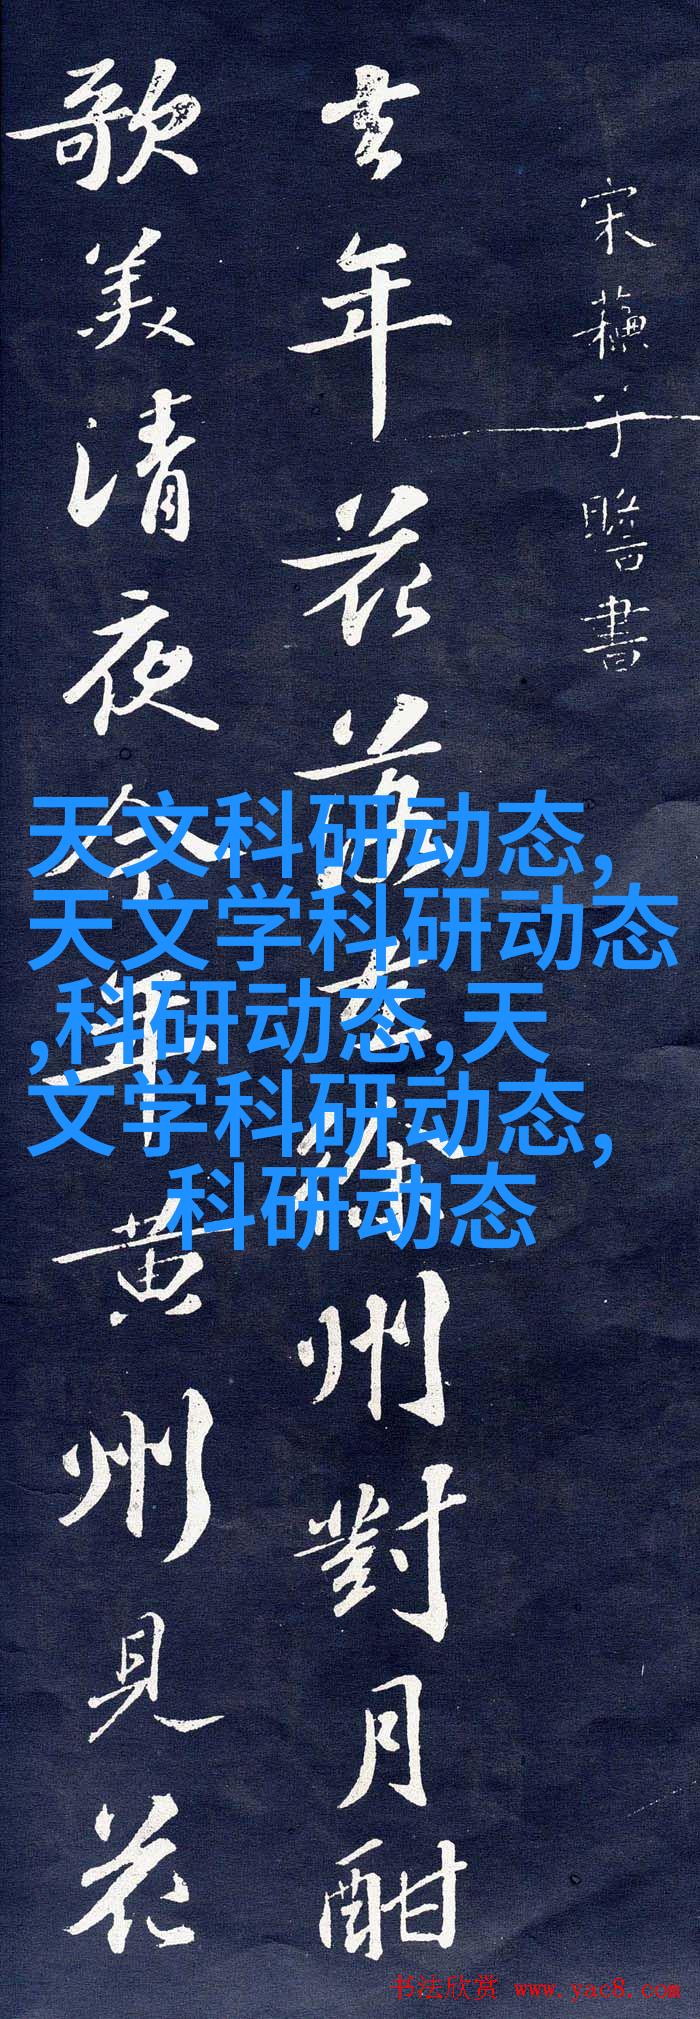 宋蘓子瞻書
去年花落在徐州對月酣
歌美清夜今年黄州見花
天文科研动态,
天文学科研动态
,科研动态,天
文学科研动态,
科研动态
书法欣赏 www.yac8.com